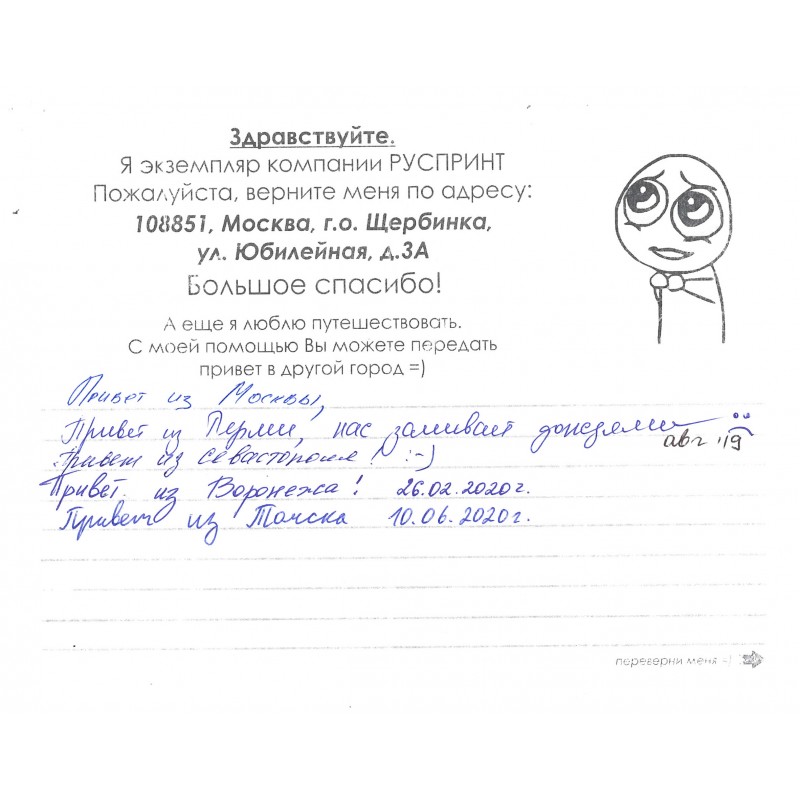 Здравствуйте.
Я экземпляр компании РУСПРИНТ
Пожалуйста, верните меня по адресу:
108851, Москва, г.о. Щербинка,
ул. Юбилейная, д.3А
Большое спасибо!
А еще я люблю путешествовать.
С моей помощью Вы можете передать
привет в другой город =)
Привет из Москвы,
Привет из Перми, нас заливает дождями
авг '19
Привет из Севастополя! :-)
Привет из Воронежа! 26.02.2020г.
Привет из Томска 10.06.2020г.
переверни меня =)